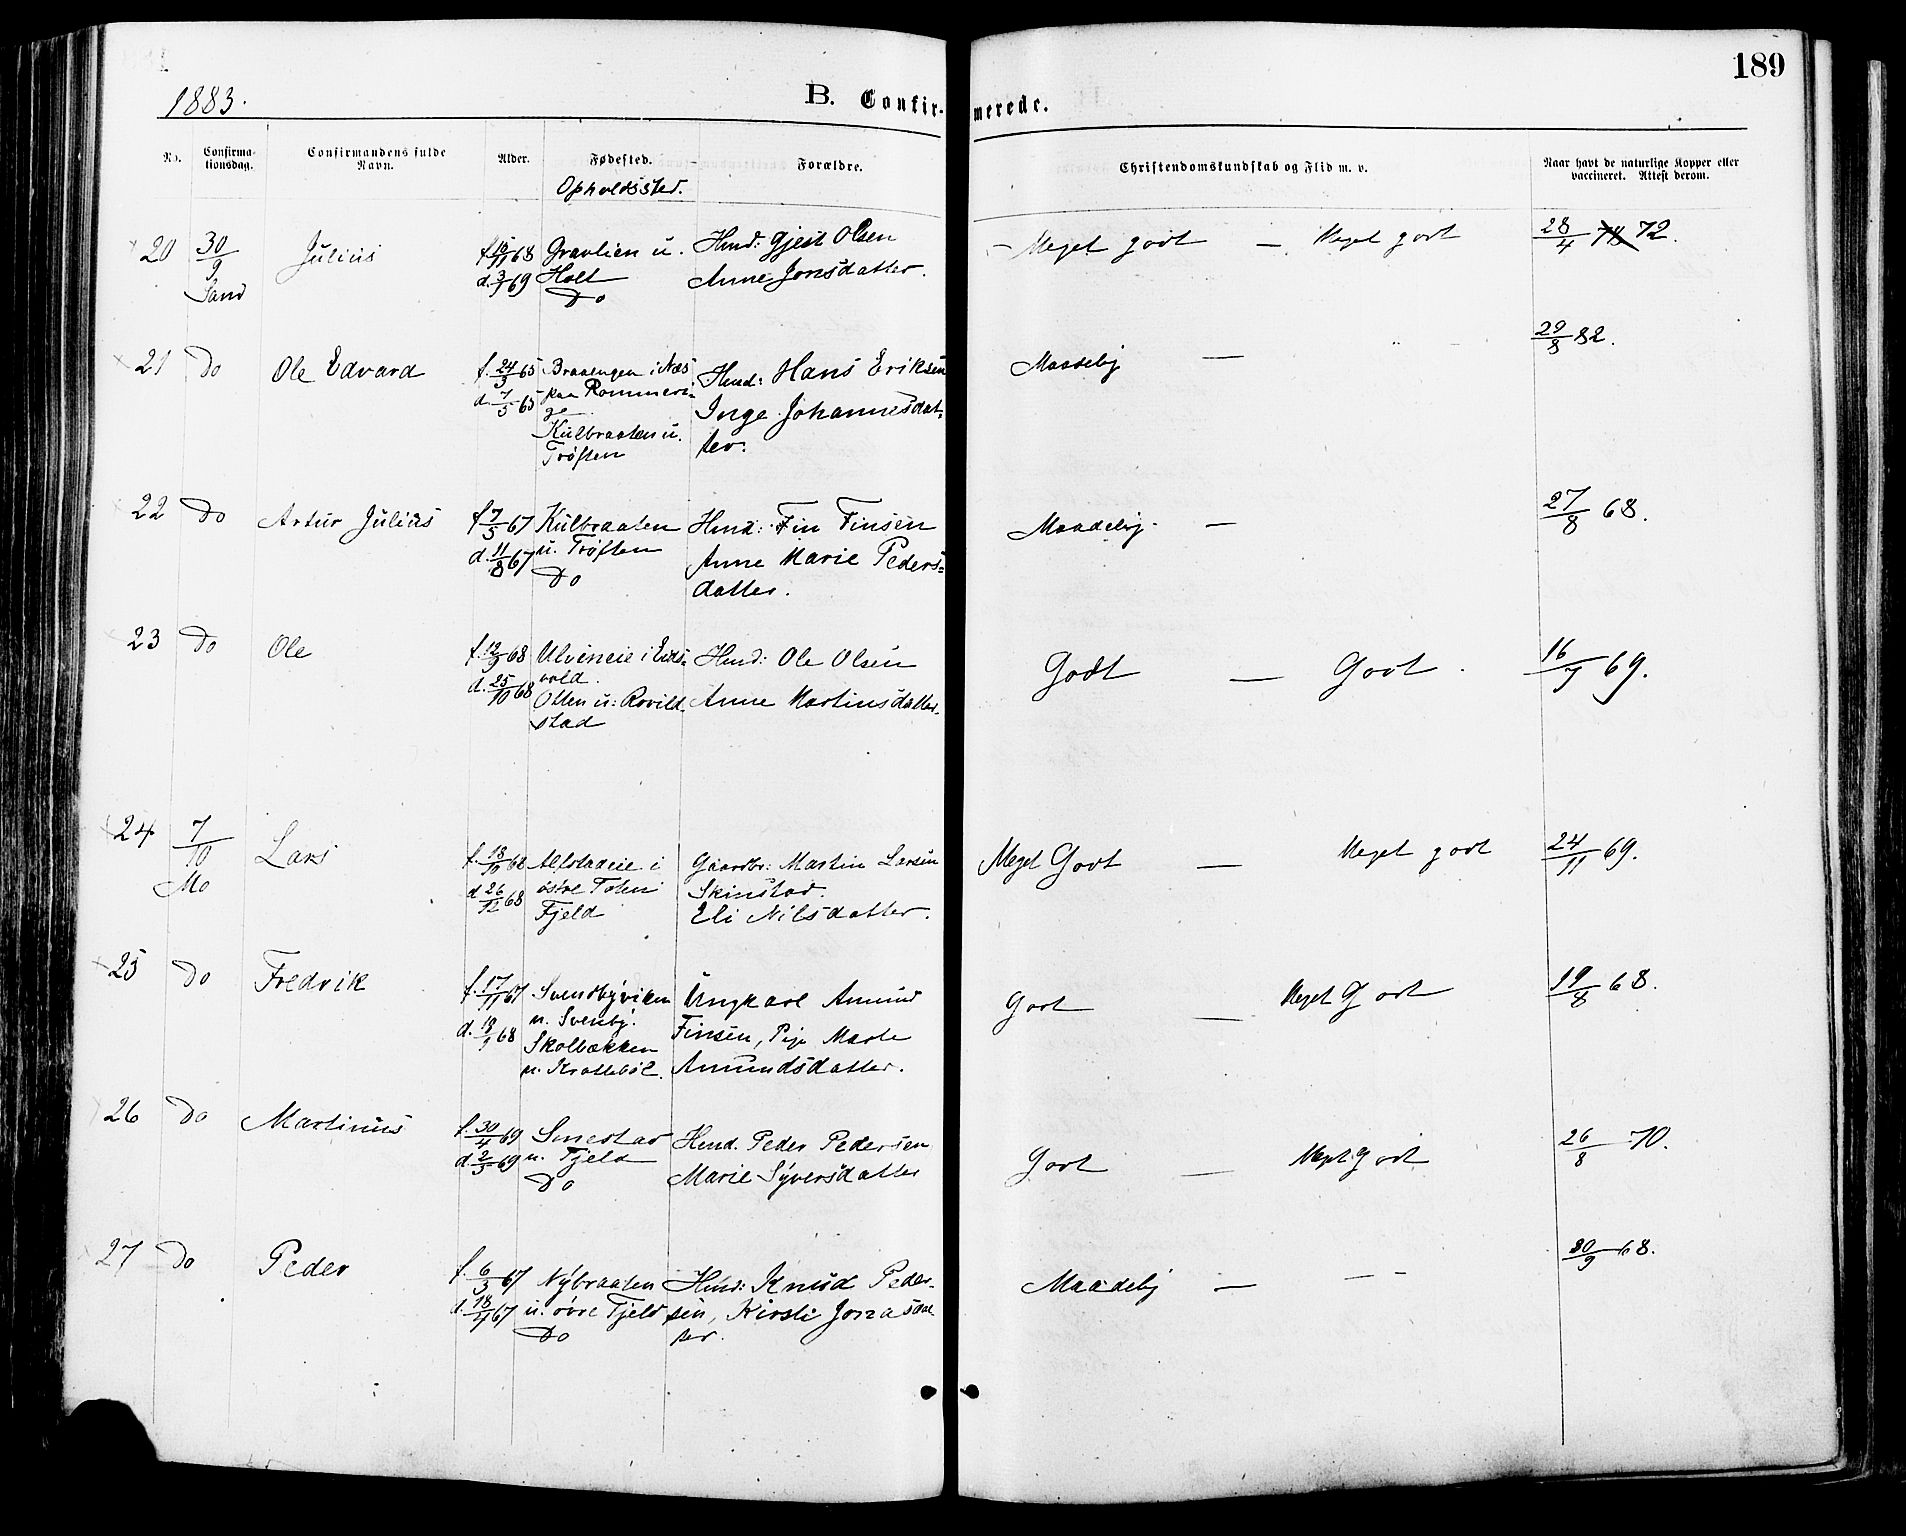 189
1883.
B. Confirmerede.
No. Confirmationsdag. Confirmandens fulde Navn. Alder. Fødested. Forældre. Christendomskundskab og Flid m. v. Naar havt de naturlige Kopper eller vaccineret. Attest derom.
Opholdssted.
20 30/9 Julius Gravlien u. Hmd: Gjest Olsen Meget godt — Meget godt 28/4 72.
Sand d. 3/1 69 Holt Anne Jonsdatter.
Do
21 Do Ole Edvard f. 24/3 65 Braaengen i Næs Hmd: Hans Eriksen Maadelig — 29/8 82.
d. 7/5 65 paa Romeri- Inge Johannesdat-
ge ter.
Kulbraaten u.
Trøften
22 Do Artur Julius f 7/5 67 Kulbraaten Hmd: Fin Finsen Maadelig — 27/8 68.
d. 11/8 67 u. Trøften Anne Marie Peders-
Do datter.
23 Do Ole f. 12/9 68 Ulvineie i Eids- Hmd: Ole Olsen Godt — Godt. 16/7 69.
d. 25/10 68 vold. Anne Martinsdatter.
u: Rovild-
stad
24 7/10 Lars f. 18/10 68 Alfstadeie i Gaardbr: Martin Larsen Meget Godt — Meget godt 24/11 69.
Mo d 26/12 68 østre Toten Skinstad.
Fjeld Eli Nilsdatter.
25 Do Fredrik f. 17/11 67 Svendbyviken Ungkarl Amund Godt — Meget Godt 19/8 68.
d. 19/1 68 u. Svenby. Finsen, Pige Marte
Skolbækken Amundsdatter.
u. Krattebøl.
26 Do Martinus f. 30/4 69 Smestad Hmd. Peder Pedersen Godt — Meget Godt 26/8 70.
d 2/5 69 u. Fjeld Marie Syversdatter
Do
27 Do Peder f. 6/3 67 Nybraaten Hmd: Knud Peder- Maadelig — — - 30/9 68.
d. 18/4 67 u. øvre Fjeld sen, Kirsti Jonasdat
Do ter.